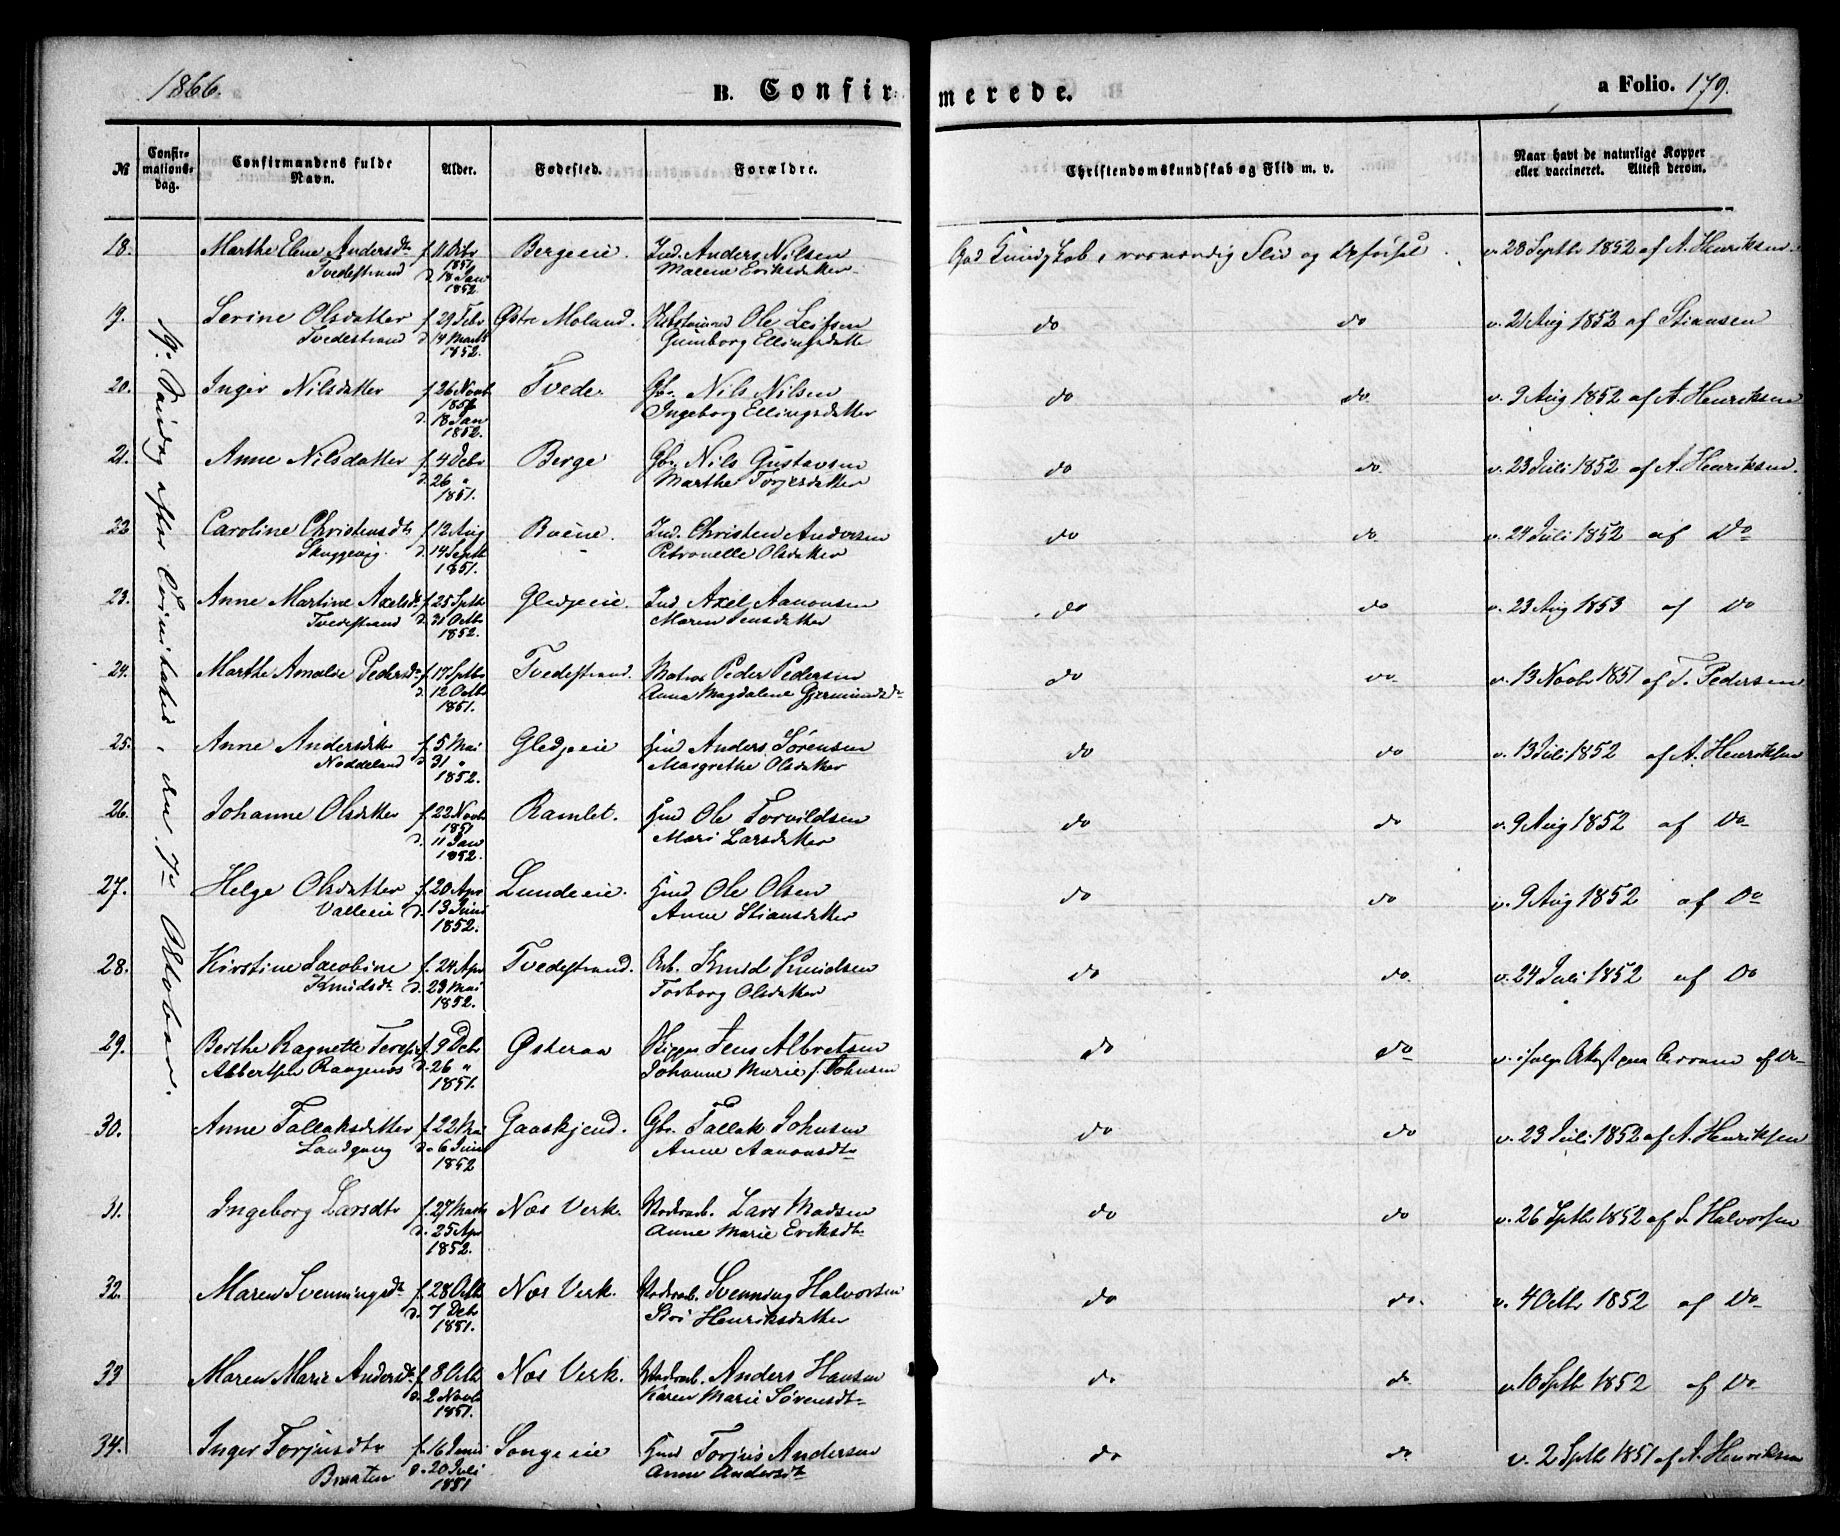 1866.
B. Confirmerede.
a Folio. 179.
№
Confirmationsdag.
Confirmandens fulde Navn.
Alder.
Fødested.
Forældre.
Christendomskundskab og Flid m. v.
Naar havt de naturlige Kopper eller vaccineret. Attest derom.
19. Søndag efter Trinitatis, den 7de Oktober.
18. Marthe Elene Andersdt f. 11 Debr Bergeeie. Ind. Anders Nilsen God Kundskab, Flid og Opførsel v. 28 Septbr 1852 af A. Henriksen.
Tvedestrand 1851 Malene Eriksdatter
d. 18 Jan
1852.
19. Serine Olsdatter f. 29 Febr Østre Moland. Ole Leifsen do do v. 21 Aug 1852 af Stiansen
Tvedestrand d. 14 Marts Gunborg Ellingsdatter
1852.
20. Inger Nilsdatter f. 26 Novb Tvede. Gbr. Nils Nilsen do do v. 9 Aug 1852 af A. Henriksen
1851 Ingeborg Ellingsdatter
d. 18 Jan
1852.
21. Anne Nilsdatter f. 4 Debr Berge Gbr. Nils Gustavsen do do v. 23 Juli 1852 af A. Henriksen.
d. 26 " Marthe Torjesdatter
1851.
22. Caroline Christensdt f. 12 Aug Boene. Ind. Christen Andersen do do v. 24 Juli 1852 af Do
d. 14 Septb Petronelle Olsdatter
1851.
23. Anne Martine Axelsdt f. 25 Sptbr Gledjeeie. Ind. Axel Aanonsen do do v. 23 Aug 1853 af Do
Tvedestrand d. 31 Octbr Maren Jensdatter
1852.
24. Marthe Amalie Pedersdt f. 17 Sptbr Tvedestrand. Matros Peder Pedersen do do v. 13 Novbr 1851 af T. Pedersen
d. 12 Octbr Anna Magdalene Gjermundsdt
1851.
25. Anne Andersdatter f. 5 Mai Gledjeeie Hmd Anders Sørensen do do v. 13 Juli 1852 af A. Henriksen
Noddeland d. 31 " Margrethe Olsdatter
1852.
26. Johanne Olsdatter f. 22 Novb Ramlet. Hmd Ole Torvildsen do do v. 9 Aug 1852 af Do
1851 Mari Larsdatter
d. 11 Jan
1852.
27. Helge Olsdatter f. 20 Apr Lundeeie. Hmd Ole Olsen do do v. 9 Aug 1852 af Do
Valleeie d. 13 Juni Anne Stiansdatter
1852.
28. Kirstine Jacobine f. 24 Apr Tvedestrand. Arb. Knud Knudsen do do v. 24 Juli 1852 af Do
Knudsdt d. 23 Mai Torborg Olsdatter
1852.
29. Berthe Ragnette Teresie f. 9 Debr Østeraa Skipper Jens Albretsen do do v. ifølge Attest
Albertsen Rangenes d. 26 " Johanne Marie f. Johnsen
1851.
30. Anne Tallaksdatter f. 22 Mai Gaaskjend. Gbr. Tallak Johnsen do do v. 23 Juli 1852 af A. Henriksen
Landgang d. 6 Juni Anne Aanonsdt
1852
31. Ingeborg Larsdtr f. 27 Marts Næs Verk. Lars Madsen do do v. 26 Sptb 1852 af S. Halvorsen
d. 25 Apr Anne Marie Eriksdt
1852.
32. Maren Svenningsdt f. 28 Octb Næs Verk. Svenning Halvorsen do do. v. 4 Octbr 1852 af Do
d. 7 Debr Siri Henriksdatter
1851.
33 Maren Marie Andersdt f. 8 Octb Næs Verk. Anders Hansen do do v. 10 Sptb 1852 af Do
d. 2 Novb Karen Marie Sørensdt
1851.
34. Inger Torjusdtr f. 16 Juni Songeeie Hmd Torjus Andersen do do v. 2 Sptb 1851 af A. Henriksen
Braaten d. 20 Juli Anne Andersdt
1851